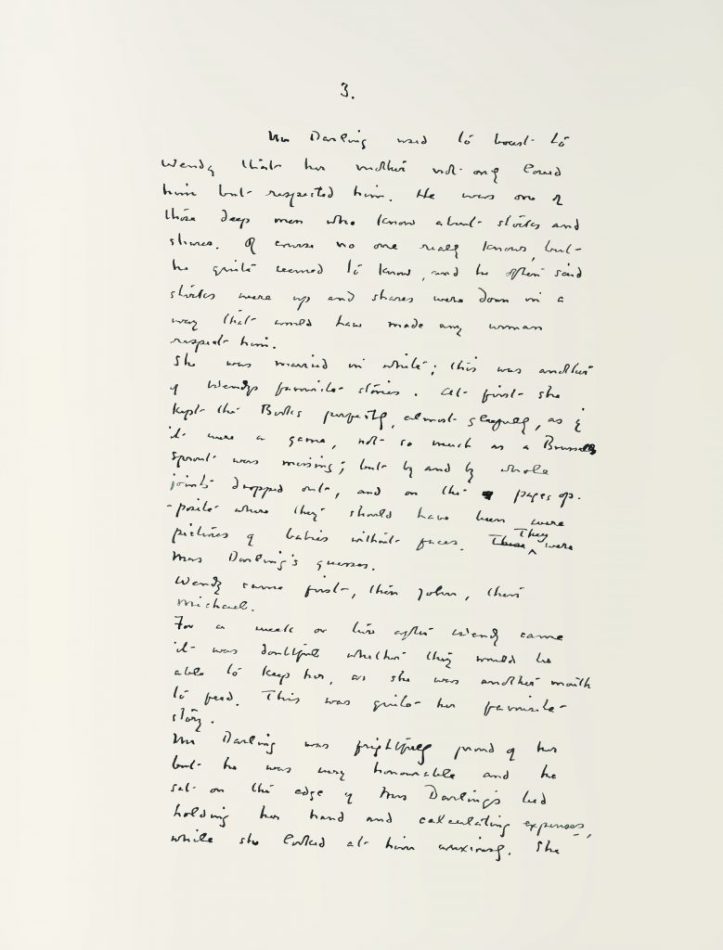 3.
Mr Darling used to boast to
Wendy that her mother not only loved
him but respected him. He was one of
those deep men who know about stocks and
shares. Of course no one really knows, but
he quite seemed to know, and he often said
stocks were up and shares were down in a
way that would have made any woman
respect him.
She was married in white; this was another
of Wendys favourite stories. At first she
kept the Books perfectly, almost gleefully, as if
it were a game, not so much as a Brussels
sprout was missing; but by and by whole
joints dropped out, and on the pages op-
-posite where they should have been were
pictures of babies without faces. These They were
Mrs Darling's guesses.
Wendy came first, then John, then
Michael.
For a week or two after Wendy came
it was doubtful whether they would be
able to keep her, as she was another mouth
to feed. This was quite her favourite
story.
Mr Darling was frightfully proud of her
but he was very honourable and he
sat on the edge of Mrs Darling's bed
holding her hand and calculating expenses,
while she looked at him anxiously. She